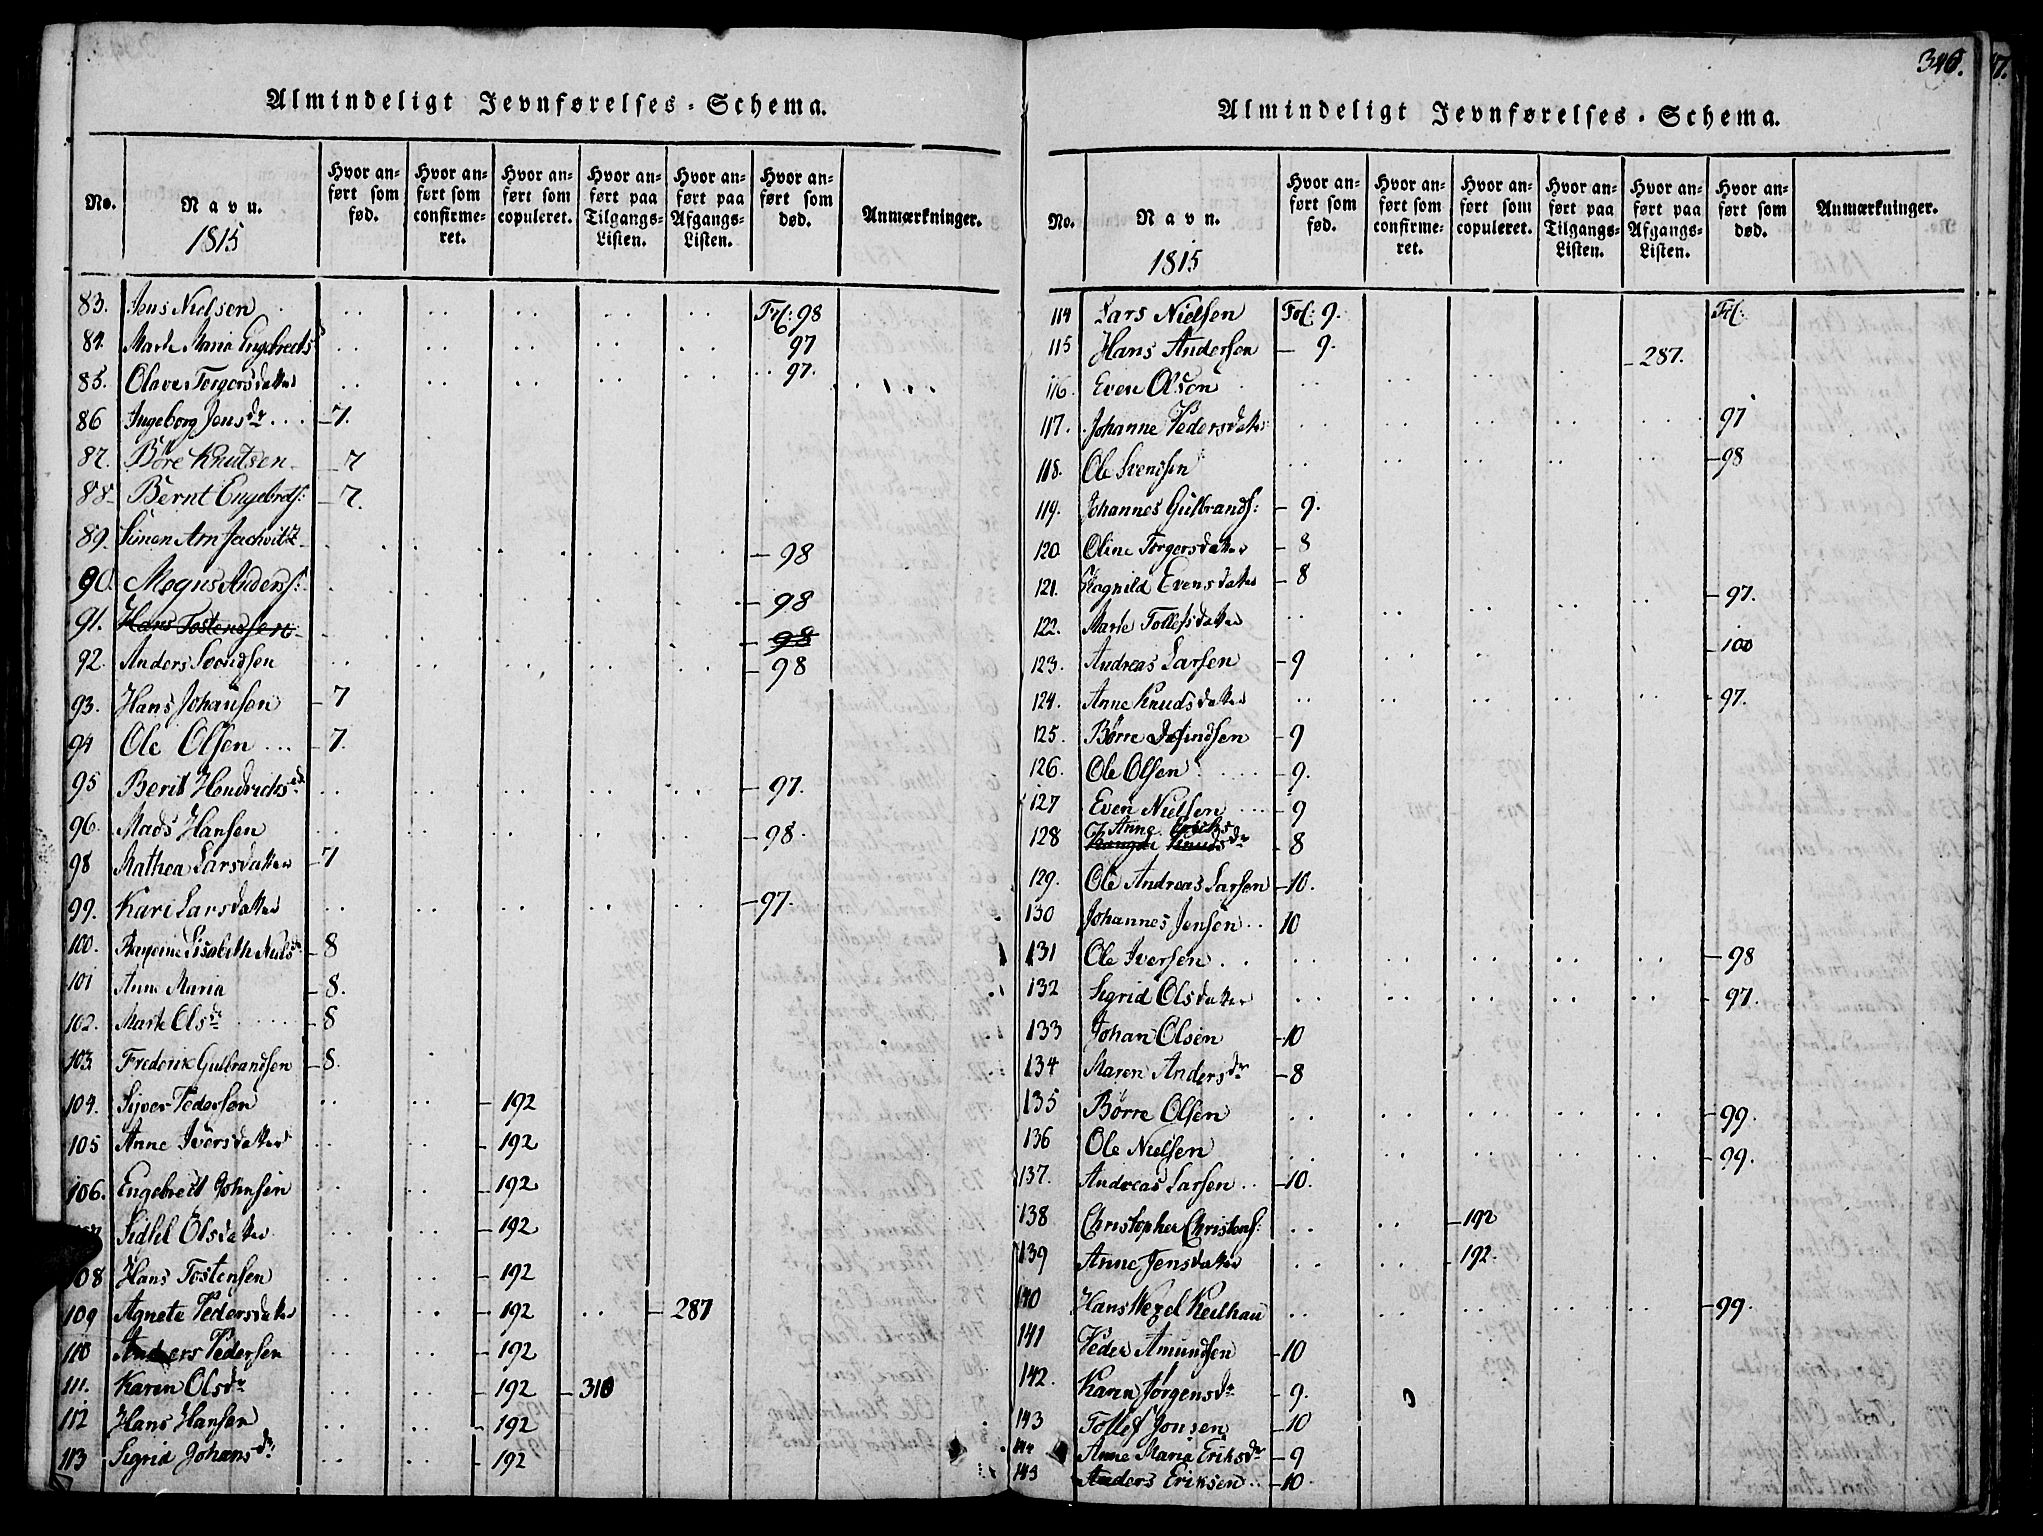 346.
Almindeligt Jevnførelses-Schema.
No. Navn. Hvor anført som fød. Hvor anført som confirmeret. Hvor anført som copuleret. Hvor anført paa Tilgangs-Listen. Hvor anført paa Afgangs-Listen. Hvor anført som død. Anmærkninger.
1815
83. Jens Nielsen .. .. .. .. .. Fol: 98
84. Marte Maria Engebrects .. .. .. .. .. 97
85. Olave Torgersdatter .. .. .. .. .. 97.
86 Ingeborg Jens dr ... 7.
87. Børe Knutsen 7
88 Bernt Engebrets: 7.
89. Simen 98
90. Mogns Anders: 98
91. Hans Tostensen 98
92. Anders Svendsen .. .. .. .. .. 98
93. Hans Johansen 7
94 Ole Olsen ... 7.
95 Berit Hendricks dr .. .. .. .. .. 97.
96. Mads Hansen .. .. .. .. 98.
98 Mathea Larsdatter 7
99. Kari Larsdatter .. .. .. .. .. 97.
100. Lisabeth Niels dr 8
101 Anne Maria 8.
102. Marte Ols dr 8
103. Frederik Gulbrandsen 8.
104. Siver Pedersen .. .. 192
105 Anne Iversdatter .. .. 192
106. Engebrett Johnsen .. .. 192
Sidsel Olsdatter .. .. 192
108 Hans Tostensen .. .. 192
109 Agnete Pedersdatter .. .. 192 .. 287
110 Anders Pedersen .. .. 192
111. Karen Ols dr .. .. 192 310
112 Hans Hansen .. .. 192
113 Sigrid Johans dr .. .. 192
Almindeligt Jevnførelses-Schema.
No. Navn. Hvor anført som fød. Hvor anført som confirmeret. Hvor anført som copuleret. Hvor anført paa Tilgangs-Listen. Hvor anført paa Afgangs-Listen. Hvor anført som død. Anmærkninger.
1815
114 Lars Nielsen Fol: 9. Fol:
115 Hans Andersen 9.
116. Even Olsen .. .. .. .. 287.
117. Johanne Pedersdatter .. .. .. .. .. 97
118. Ole Svendsen .. .. .. .. .. 98
119. Johannes Gulbrands: 9.
120. Oline Torgersdatter 8
121. Ragnild Evensdatter 8
122. Marte Tollefsdatter .. .. .. .. .. 97.
123. Andreas Larsen 9 100
124. Anne Knudsdatter .. .. .. .. .. 97.
125. Børre Asmundsen 9
126. Ole Olsen 9.
127 Even Nielsen 9
128 Anne Ericks dr 8
129. Ole Andreas Larsen 10.
130 Johannes Jensen .. 10
131 Ole Iversen .. .. .. .. .. .. 98
132 Sigrid Olsdatter .. .. .. .. .. 97.
133 Johan Olsen 10
134 Maren Anders dr 8
135 Børre Olsen .. .. .. .. .. 99.
136 Ole Nielsen .. .. .. .. .. 99.
137. Andreas Larsen .. 10.
138 Christopher Christens: .. .. 192
139 Anne Jensdatter .. .. 192.
140 Hans Wezel Keilhau .. .. .. .. .. 99.
141 Peder Amundsen 10
142. Karen Jørgens dr 9.
143 Tollef Jonsen 10
144 Anne Maria Eriks dr 9
145 Anders Eriksen .. 10